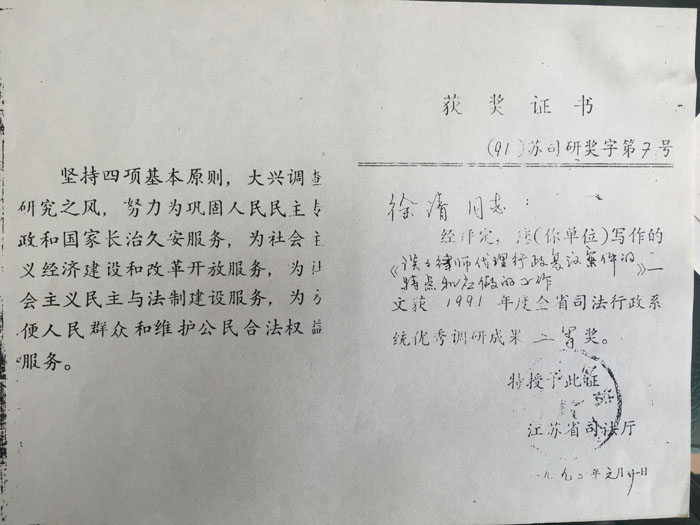 坚持四项基本原则，大兴调查
研究之风，努力为巩固人民民主专
政和国家长治久安服务，为社会主
义经济建设和改革开放服务，为社
会主义民主与法制建设服务，为方
便人民群众和维护公民合法权益
服务。
获奖证书
(91)苏司研奖字第7号
徐清同志：
经评定，你(你单位)写作的
《谈谈律师代理行政复议案件的
特点和应做的工作》一
文获1991年度全省司法行政系
统优秀调研成果二等奖。
特授予此证
江苏省司法厅
一九九二年元月廿日